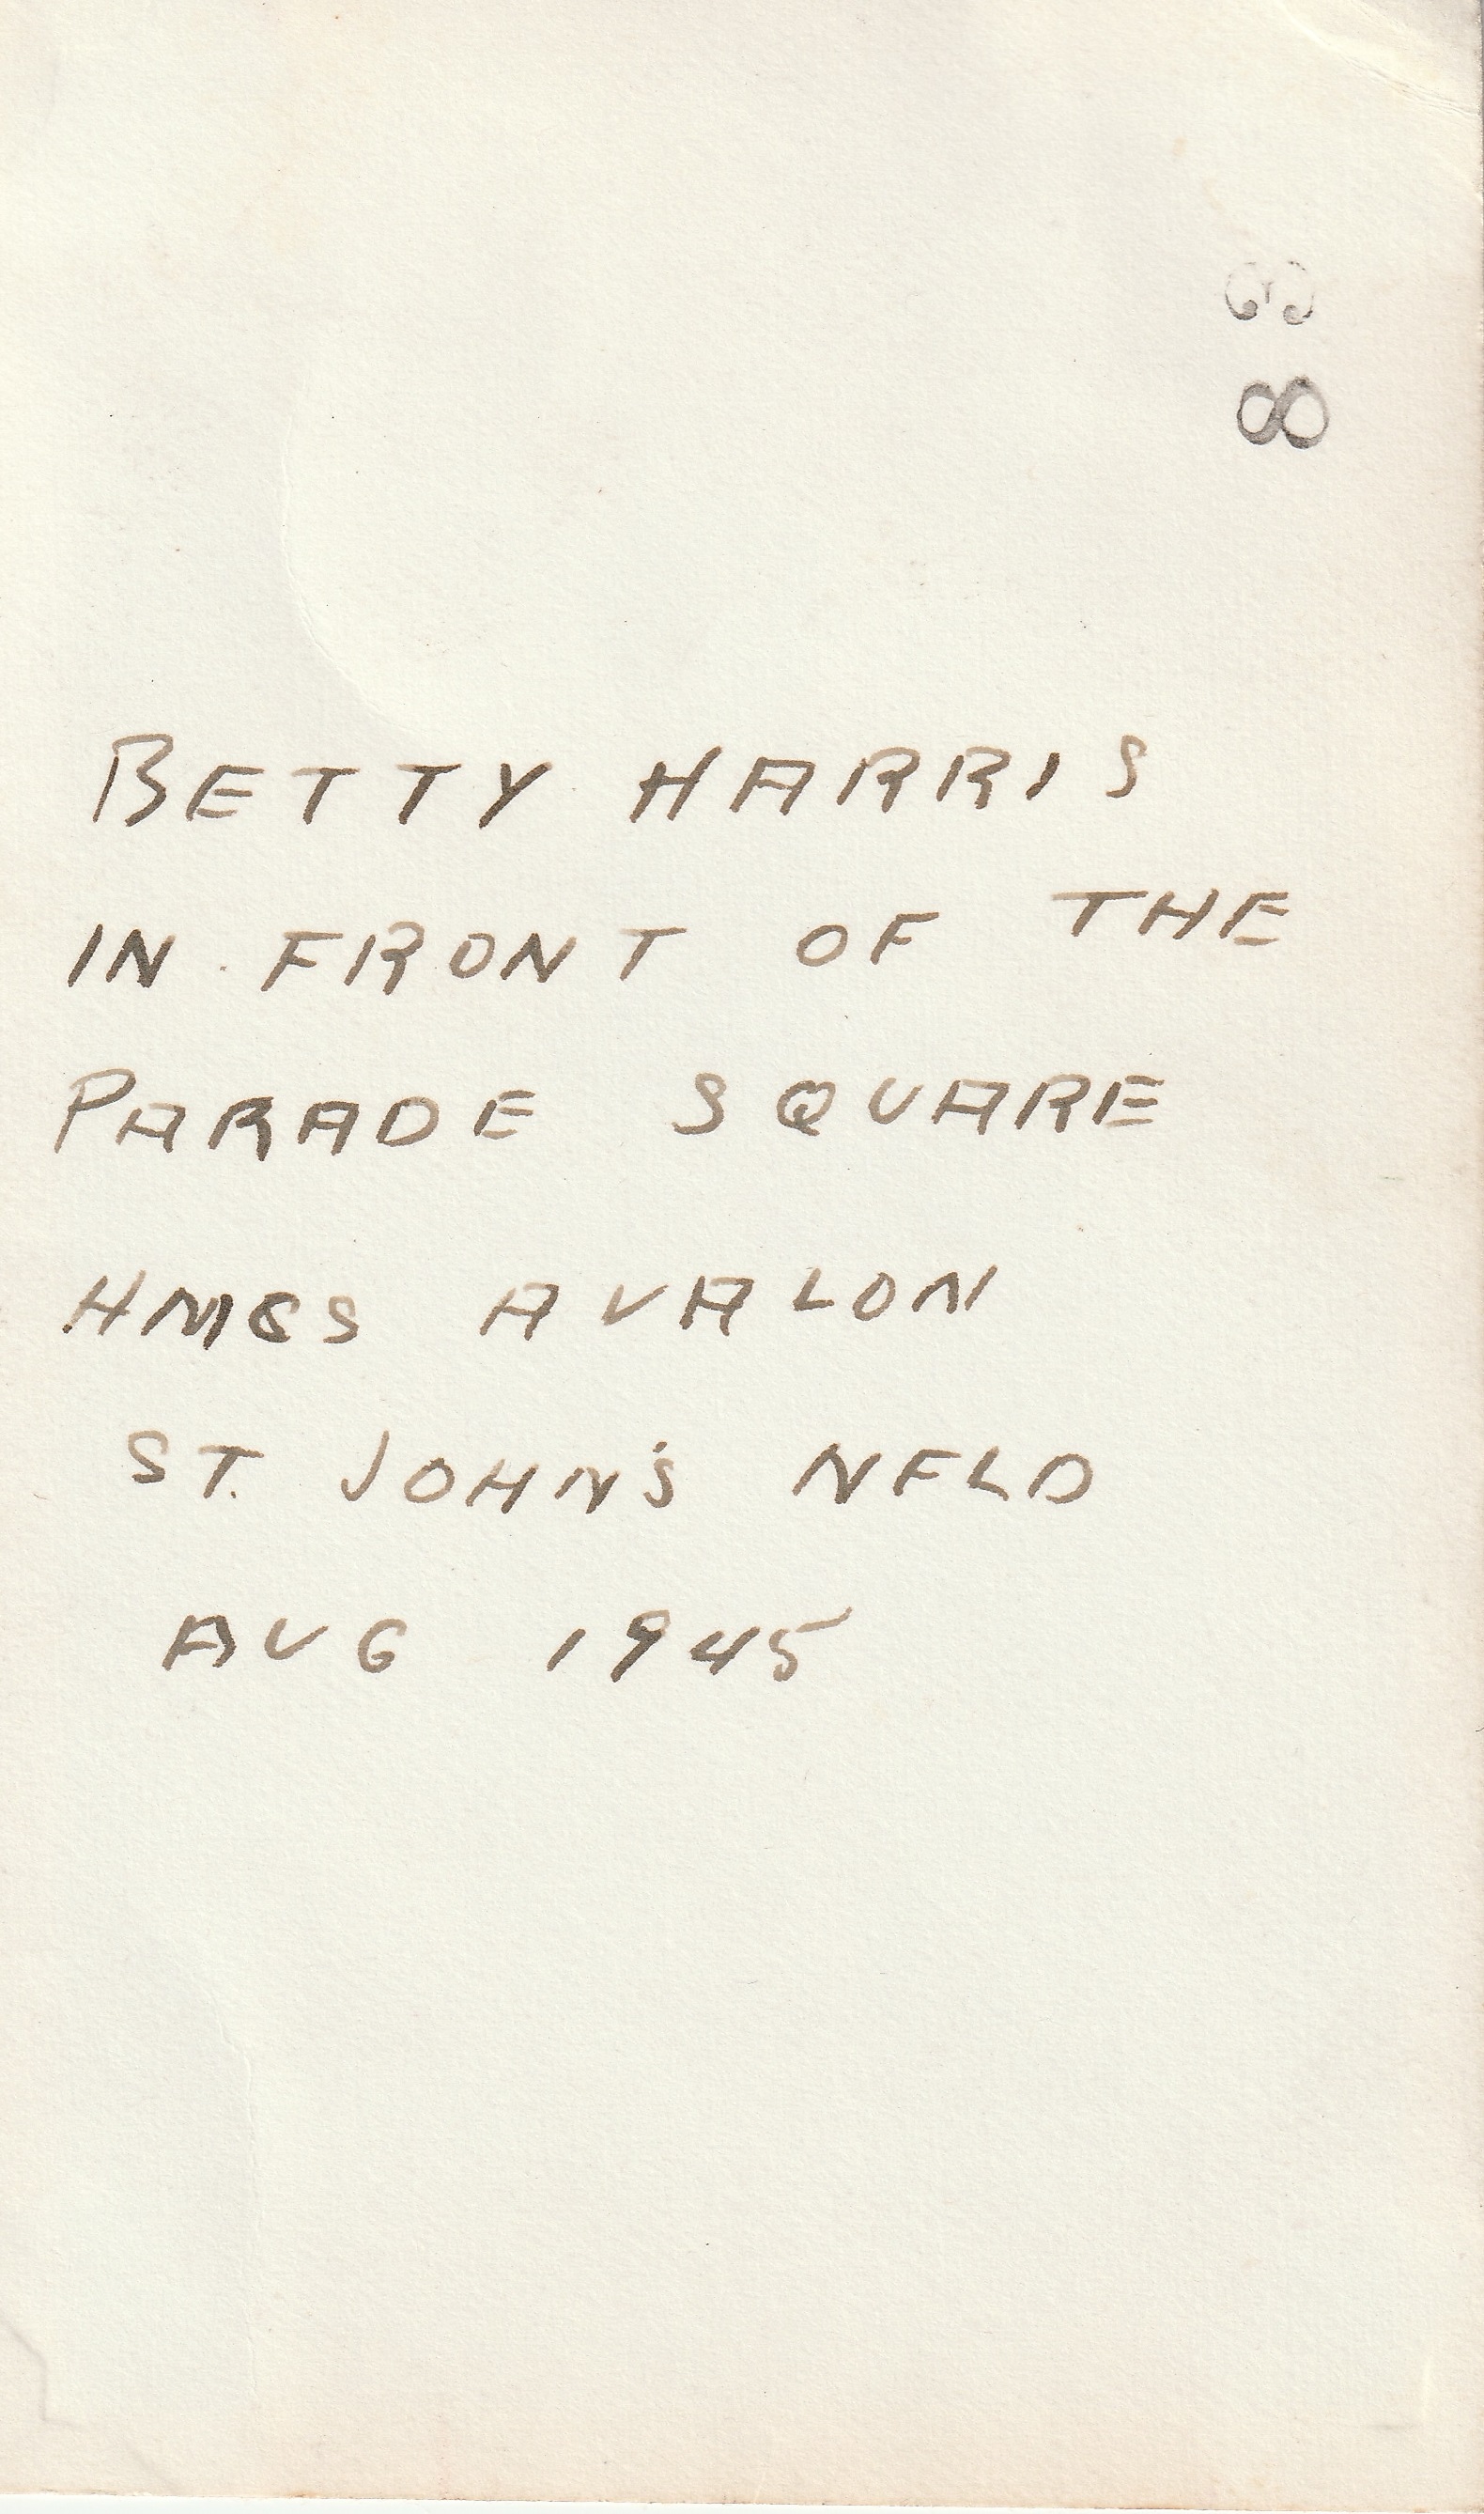 38
BETTY HARRIS
IN FRONT OF THE
PARADE SQUARE
HMCS AVALON
ST. JOHN'S NFLD
AUG 1945